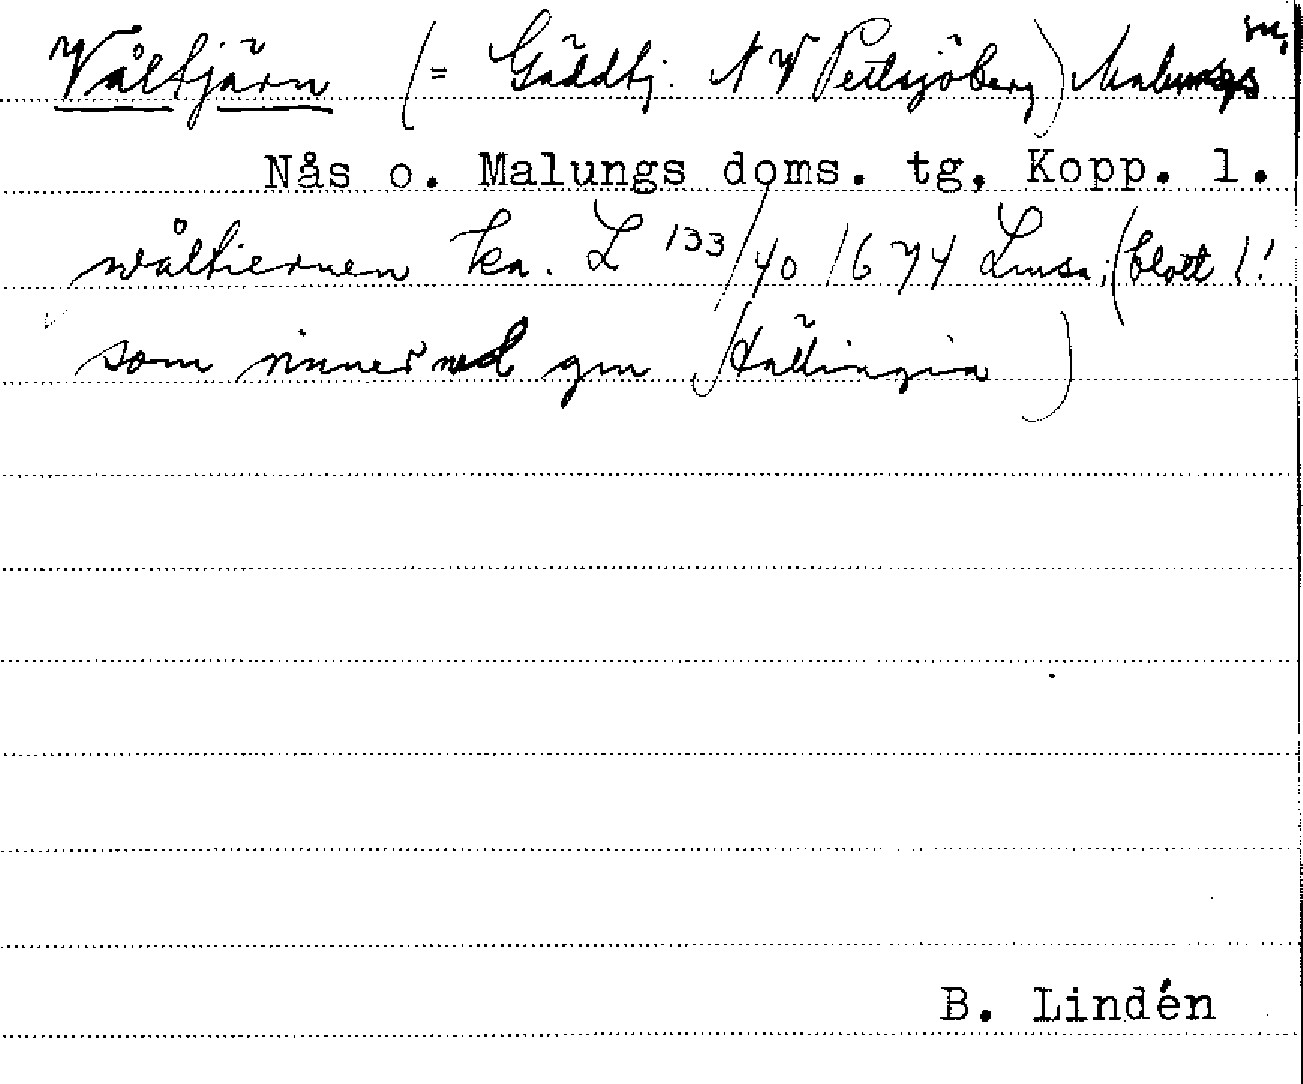 Våltjärn (= Gäddtj. NV Pellesjöberg) Malungs sn,
Nås o. Malungs doms. tg, Kopp. l.
wåltiernen ka. L 133/40 1674 Limsa; (blott !!
som rinner ned gm Hällingia)
B. Lindén